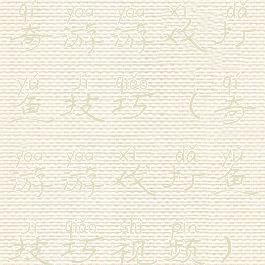 qí yóu yóu xì dǎ
奇游游戏打
yú jì qiǎo qí
鱼技巧（奇
yóu yóu xì dǎ yú
游游戏打鱼
jì qiǎo shì pín
技巧视频）